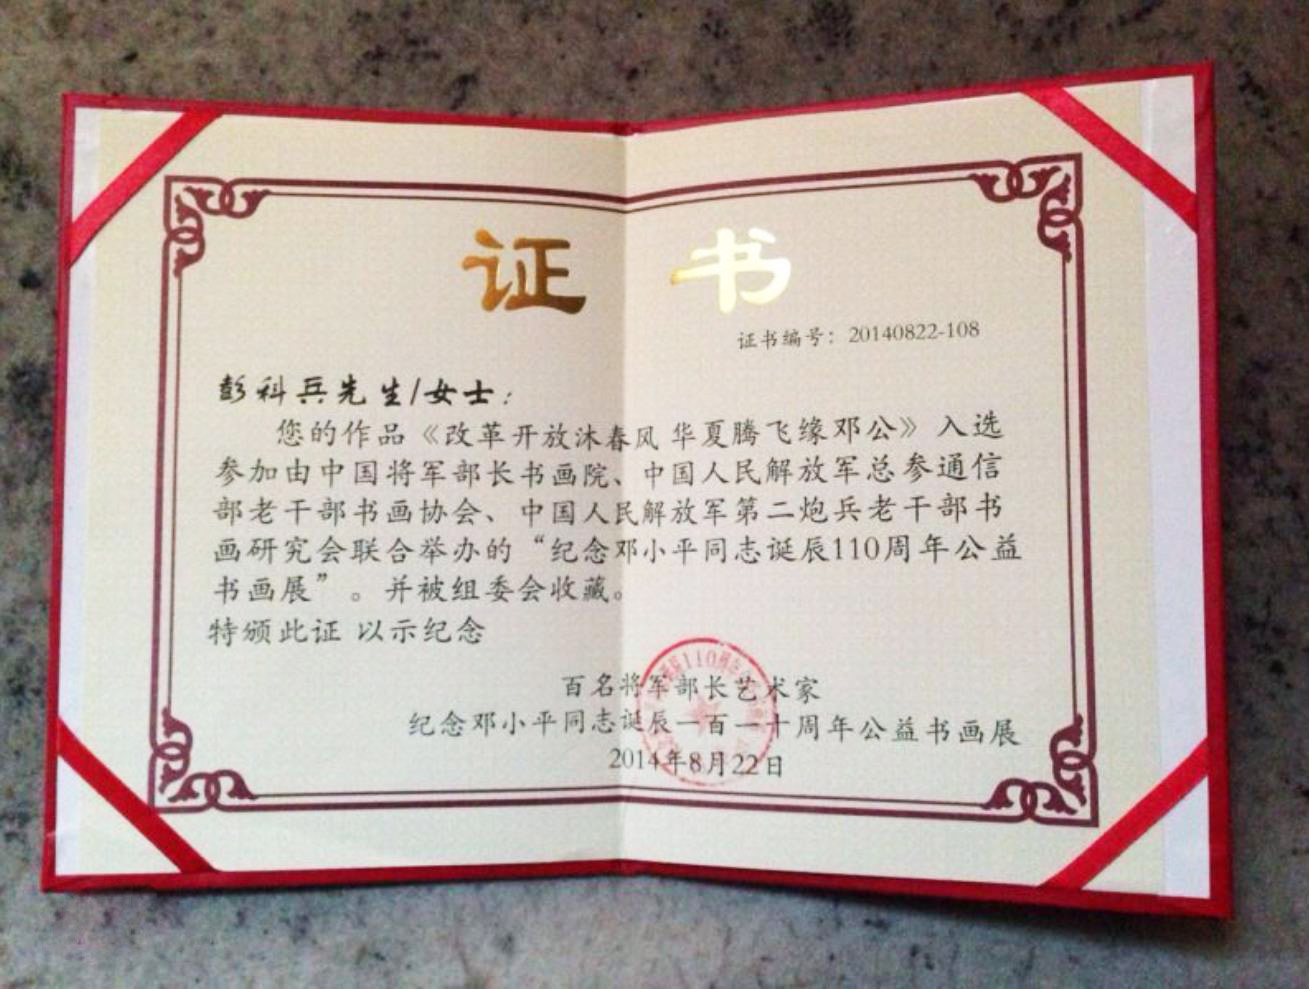 证 书
证书编号：20140822-108
彭科兵先生/女士：
您的作品《改革开放沐春风 华夏腾飞缘邓公》入选
参加由中国将军部长书画院、中国人民解放军总参通信
部老干部书画协会、中国人民解放军第二炮兵老干部书
画研究会联合举办的“纪念邓小平同志诞辰110周年公益
书画展”。并被组委会收藏。
特颁此证 以示纪念
百名将军部长艺术家
纪念邓小平同志诞辰一百一十周年公益书画展
2014年8月22日